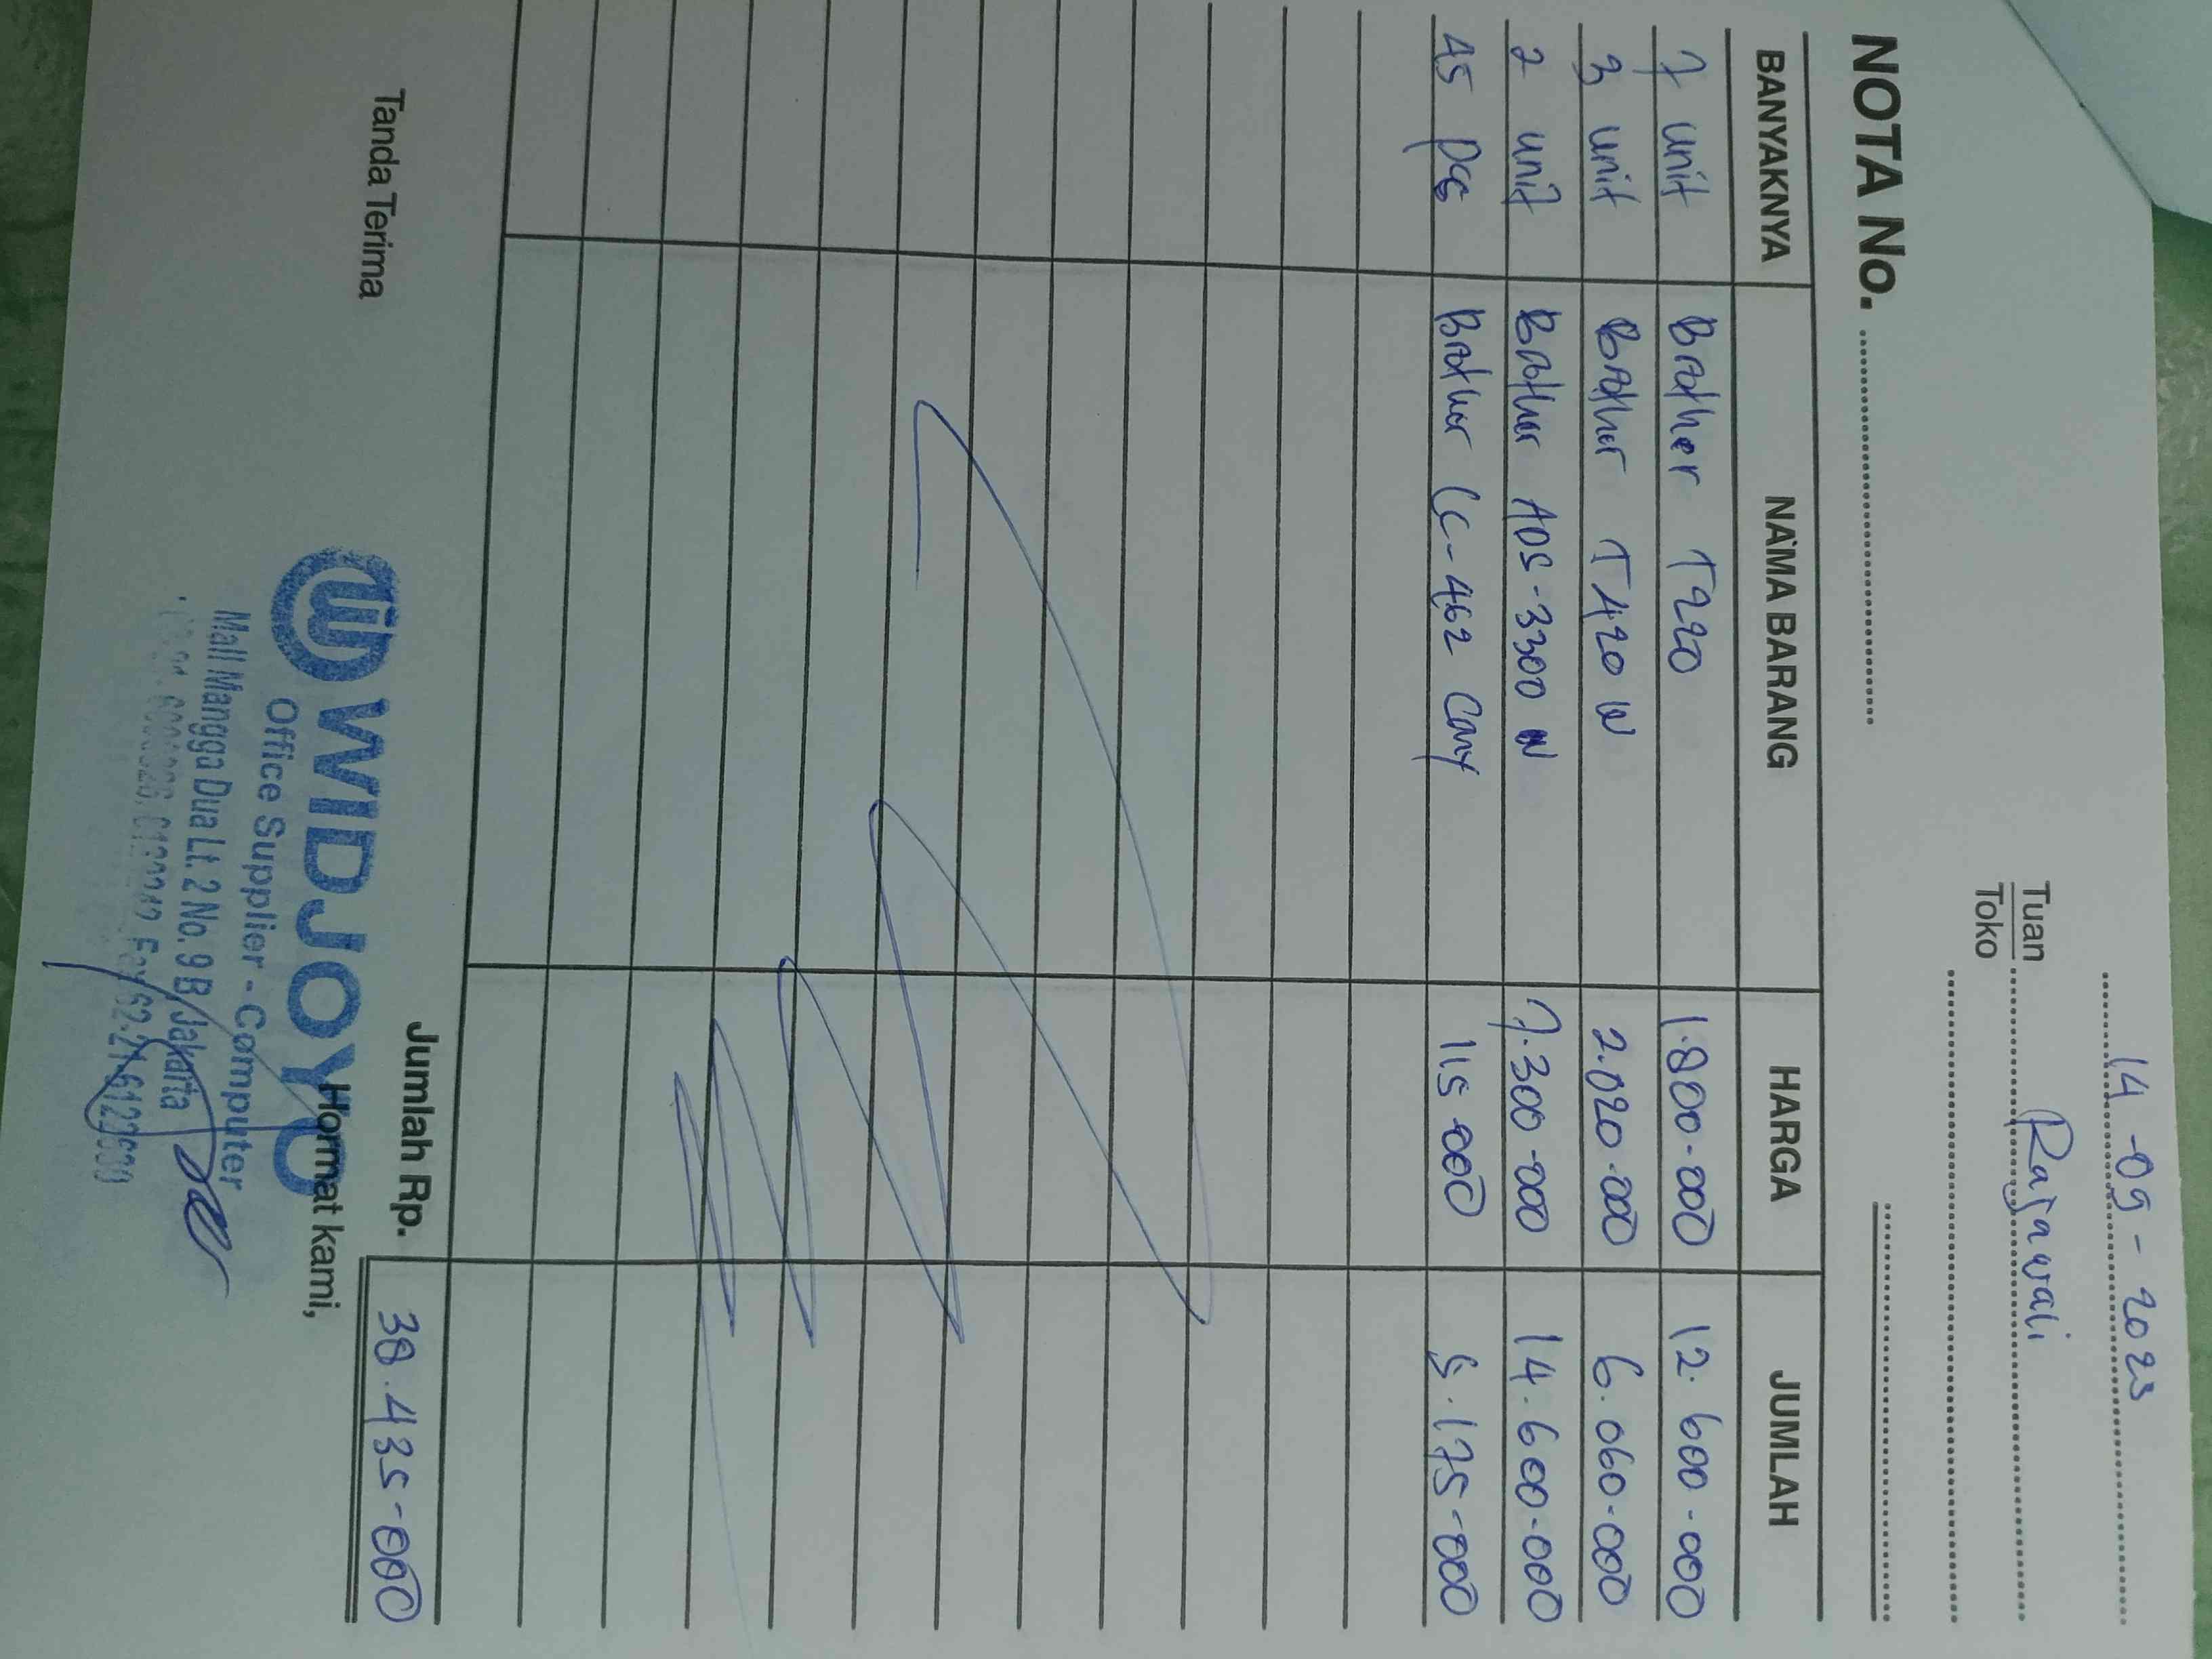 14-09-2023
Tuan Rajawali
Toko
NOTA No.
BANYAKNYA NAMA BARANG HARGA JUMLAH
7 unit Brother T220 1.800.000 12.600.000
3 unit Brother T420 W 2.020.000 6.060.000
2 unit Brother ADS-3300 W 7.300.000 14.600.000
45 pcs Brother LC-462 Cmy 115.000 5.175.000
Jumlah Rp. 38.435.000
Tanda Terima Hormat kami,
WIDJOYO
Office Supplier - Computer
Mall Mangga Dua Lt. 2 No. 9 B Jakarta